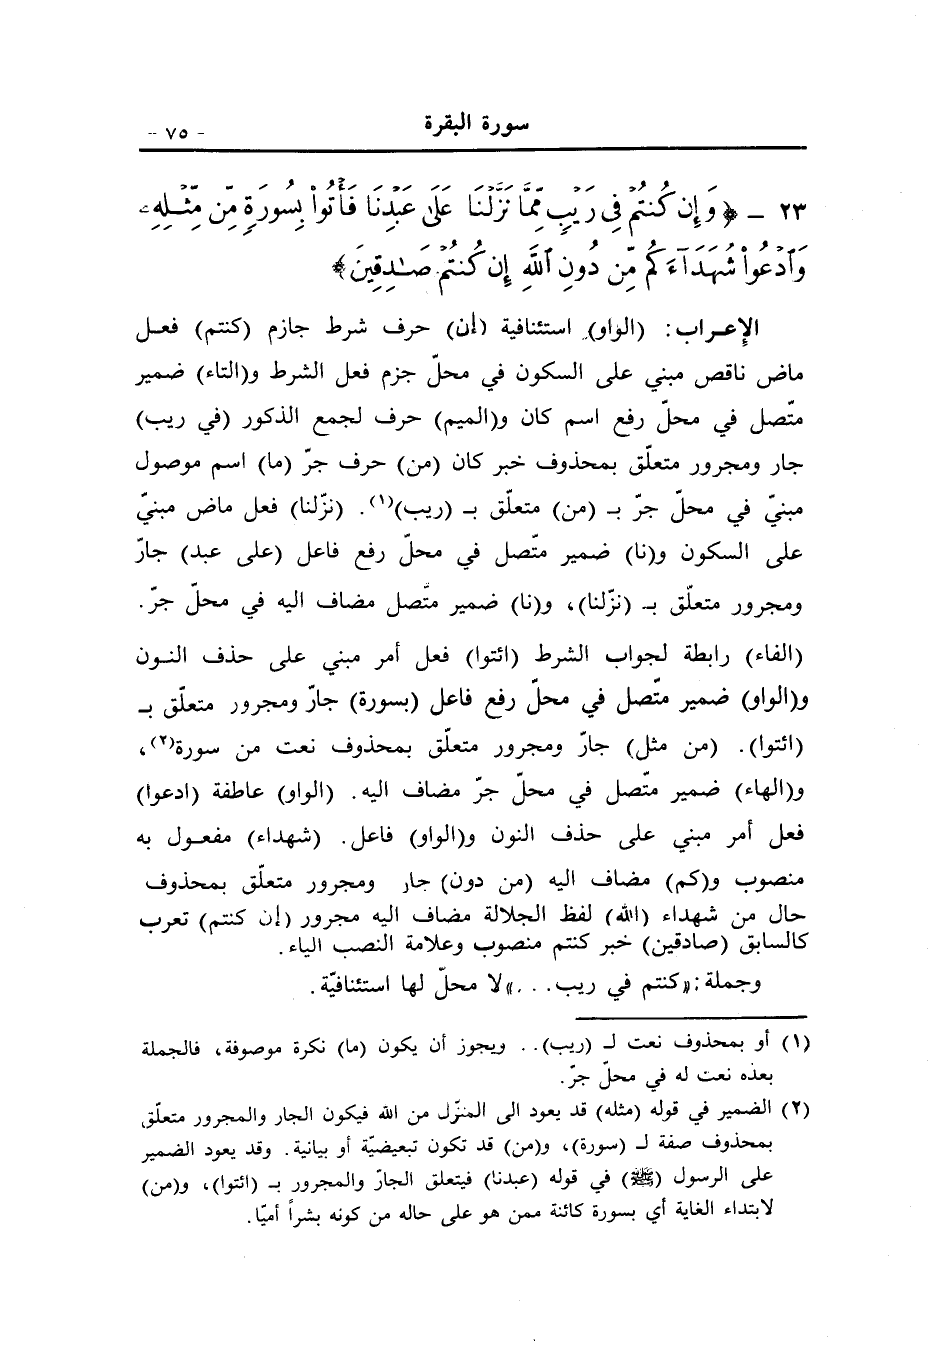 سورة البقرة
- ٧٥ -
٢٣ - ﴿وَإِن كُنتُمْ فِى رَيْبٍ مِّمَّا نَزَّلْنَا عَلَىٰ عَبْدِنَا فَأْتُوا۟ بِسُورَةٍ مِّن مِّثْلِهِۦ
وَٱدْعُوا۟ شُهَدَآءَكُم مِّن دُونِ ٱللَّهِ إِن كُنتُمْ صَـٰدِقِينَ﴾
الإعراب: (الواو) استئنافية (أن) حرف شرط جازم (كنتم) فعل
ماض ناقص مبني على السكون في محلّ جزم فعل الشرط و(التاء) ضمير
متّصل في محلّ رفع اسم كان و(الميم) حرف لجمع الذكور (في ريب)
جار ومجرور متعلّق بمحذوف خبر كان (من) حرف جرّ (ما) اسم موصول
مبنيّ في محلّ جرّ بـ (من) متعلّق بـ (ريب)(١). (نزّلنا) فعل ماض مبنيّ
على السكون و(نا) ضمير متّصل في محلّ رفع فاعل (على عبد) جارّ
ومجرور متعلّق بـ (نزّلنا)، و(نا) ضمير متّصل مضاف اليه في محلّ جرّ.
(الفاء) رابطة لجواب الشرط (ائتوا) فعل أمر مبني على حذف النون
و(الواو) ضمير متّصل في محلّ رفع فاعل (بسورة) جارّ ومجرور متعلّق بـ
(ائتوا). (من مثل) جارّ ومجرور متعلّق بمحذوف نعت من سورة(٢)،
و(الهاء) ضمير متّصل في محلّ جرّ مضاف اليه. (الواو) عاطفة (ادعوا)
فعل أمر مبني على حذف النون و(الواو) فاعل. (شهداء) مفعول به
منصوب و(كم) مضاف اليه (من دون) جار ومجرور متعلّق بمحذوف
حال من شهداء (الله) لفظ الجلالة مضاف اليه مجرور (إن كنتم) تعرب
كالسابق (صادقين) خبر كنتم منصوب وعلامة النصب الياء.
وجملة: «كنتم في ريب...» لا محلّ لها استئنافيّة.
(١) أو بمحذوف نعت لـ (ريب).. ويجوز أن يكون (ما) نكرة موصوفة، فالجملة
بعذه نعت له في محلّ جرّ.
(٢) الضمير في قوله (مثله) قد يعود الى المنزّل من الله فيكون الجار والمجرور متعلّق
بمحذوف صفة لـ (سورة)، و(من) قد تكون تبعيضيّة أو بيانية. وقد يعود الضمير
على الرسول (ﷺ) في قوله (عبدنا) فيتعلق الجارّ والمجرور بـ (ائتوا)، و(من)
لابتداء الغاية أي بسورة كائنة ممن هو على حاله من كونه بشراً أميّا.